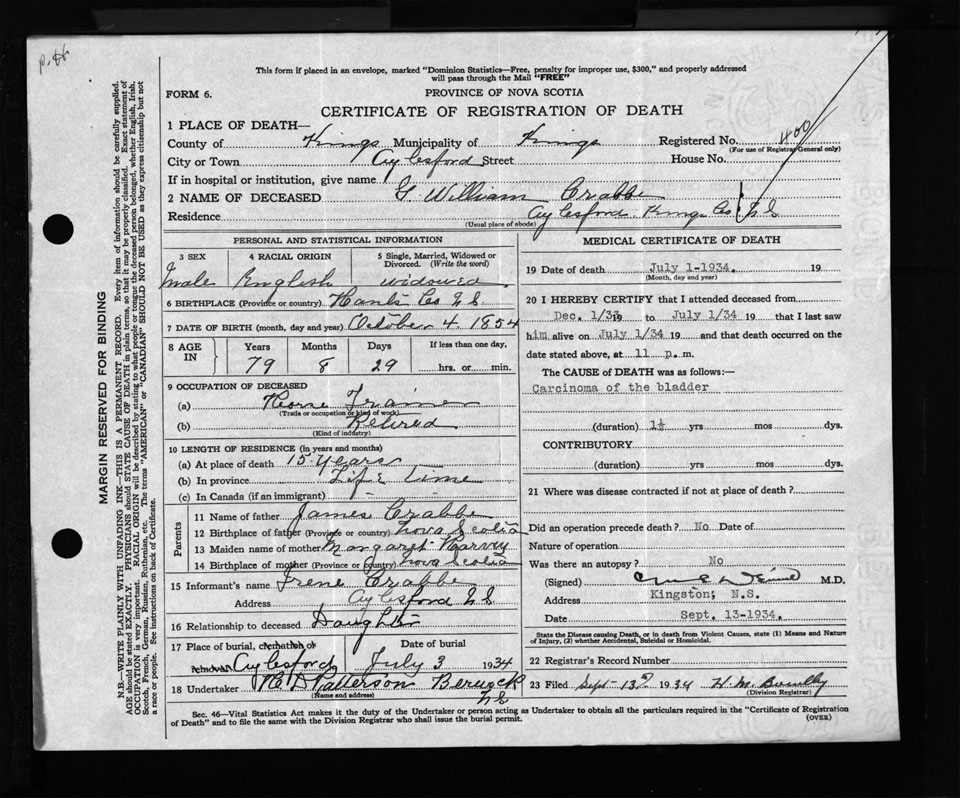 p.
This form if placed in an envelope, marked "Dominion Statistics—Free, penalty for improper use, $300," and properly addressed
will pass through the Mail "FREE"
FORM 6.
PROVINCE OF NOVA SCOTIA
CERTIFICATE OF REGISTRATION OF DEATH
1 PLACE OF DEATH—
County of Kings Municipality of Kings Registered No. 400
(For use of Registrar General only)
City or Town Aylesford Street House No.
If in hospital or institution, give name
2 NAME OF DECEASED G. William Crabbe
Residence Aylesford Kings Co N S
(Usual place of abode)
PERSONAL AND STATISTICAL INFORMATION
3 SEX 4 RACIAL ORIGIN 5 Single, Married, Widowed or Divorced. (Write the word)
male English widowed
6 BIRTHPLACE (Province or country) Hants Co N S
7 DATE OF BIRTH (month, day and year) October 4. 1854
8 AGE IN Years Months Days If less than one day,
79 8 29 hrs. or min.
9 OCCUPATION OF DECEASED
(a) Horse Trainer
(Trade or occupation or kind of work)
(b) Retired
(Kind of industry)
10 LENGTH OF RESIDENCE (in years and months)
(a) At place of death 15 years
(b) In province Life time
(c) In Canada (if an immigrant)
Parents
11 Name of father James Crabbe
12 Birthplace of father (Province or country) Nova Scotia
13 Maiden name of mother Margaret Harvey
14 Birthplace of mother (Province or country) Nova Scotia
15 Informant's name Irene Crabbe
Address Aylesford N S
16 Relationship to deceased Daughter
17 Place of burial, cremation or removal Date of burial
Aylesford July 3 1934
18 Undertaker Patterson Berwick
(Name and address) N S
MEDICAL CERTIFICATE OF DEATH
19 Date of death July 1-1934. 19
(Month, day and year)
20 I HEREBY CERTIFY that I attended deceased from
Dec. 1/33 19 to July 1/34 19 that I last saw
him alive on July 1/34 19 and that death occurred on the
date stated above, at 11 p. m.
The CAUSE of DEATH was as follows:—
Carcinoma of the bladder
(duration) 1½ yrs mos dys.
CONTRIBUTORY
(duration) yrs mos dys.
21 Where was disease contracted if not at place of death?
Did an operation precede death? No Date of
Nature of operation
Was there an autopsy? No
(Signed) M.D.
Address Kingston, N.S.
Date Sept. 13-1934.
State the Disease causing Death, or in death from Violent Causes, state (1) Means and Nature
of Injury, (2) whether Accidental, Suicidal or Homicidal.
22 Registrar's Record Number
23 Filed Sept 13 1934 H. M.
(Division Registrar)
Sec. 46—Vital Statistics Act makes it the duty of the Undertaker or person acting as Undertaker to obtain all the particulars required in the "Certificate of Registration
of Death" and to file the same with the Division Registrar who shall issue the burial permit.
(OVER)
MARGIN RESERVED FOR BINDING
N.B.—WRITE PLAINLY WITH UNFADING INK—THIS IS A PERMANENT RECORD. Every item of information should be carefully supplied.
AGE should be stated EXACTLY. PHYSICIANS should STATE CAUSE OF DEATH in plain terms, so that it may be properly classified. Exact statement of
OCCUPATION is very important. RACIAL ORIGIN will be described by stating to what people or tongue the deceased person belonged, whether English, Irish,
Scotch, French, German, Russian, Ruthenian, etc. The terms "AMERICAN" or "CANADIAN" SHOULD NOT BE USED as they express citizenship but not
a race or people. See instructions on back of Certificate.